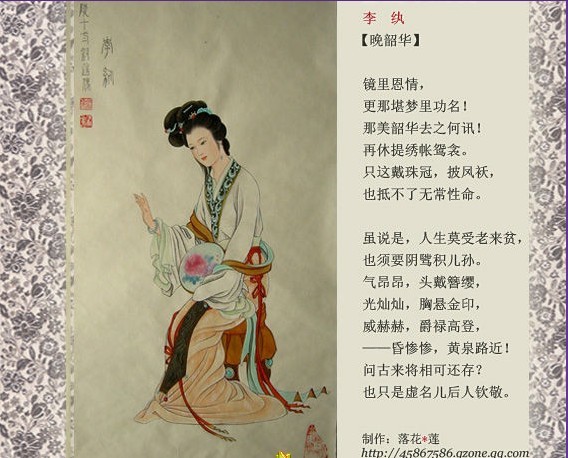 李 纨
李 纨
【晚韶华】
镜里恩情，
更那堪梦里功名！
那美韶华去之何讯！
再休提绣帐鸳衾。
只这戴珠冠，披凤袄，
也抵不了无常性命。
虽说是，人生莫受老来贫，
也须要阴骘积儿孙。
气昂昂，头戴簪缨，
光灿灿，胸悬金印，
威赫赫，爵禄高登，
——昏惨惨，黄泉路近！
问古来将相可还存？
也只是虚名儿后人钦敬。
制作：落花*莲
http://45867586.qzone.qq.com